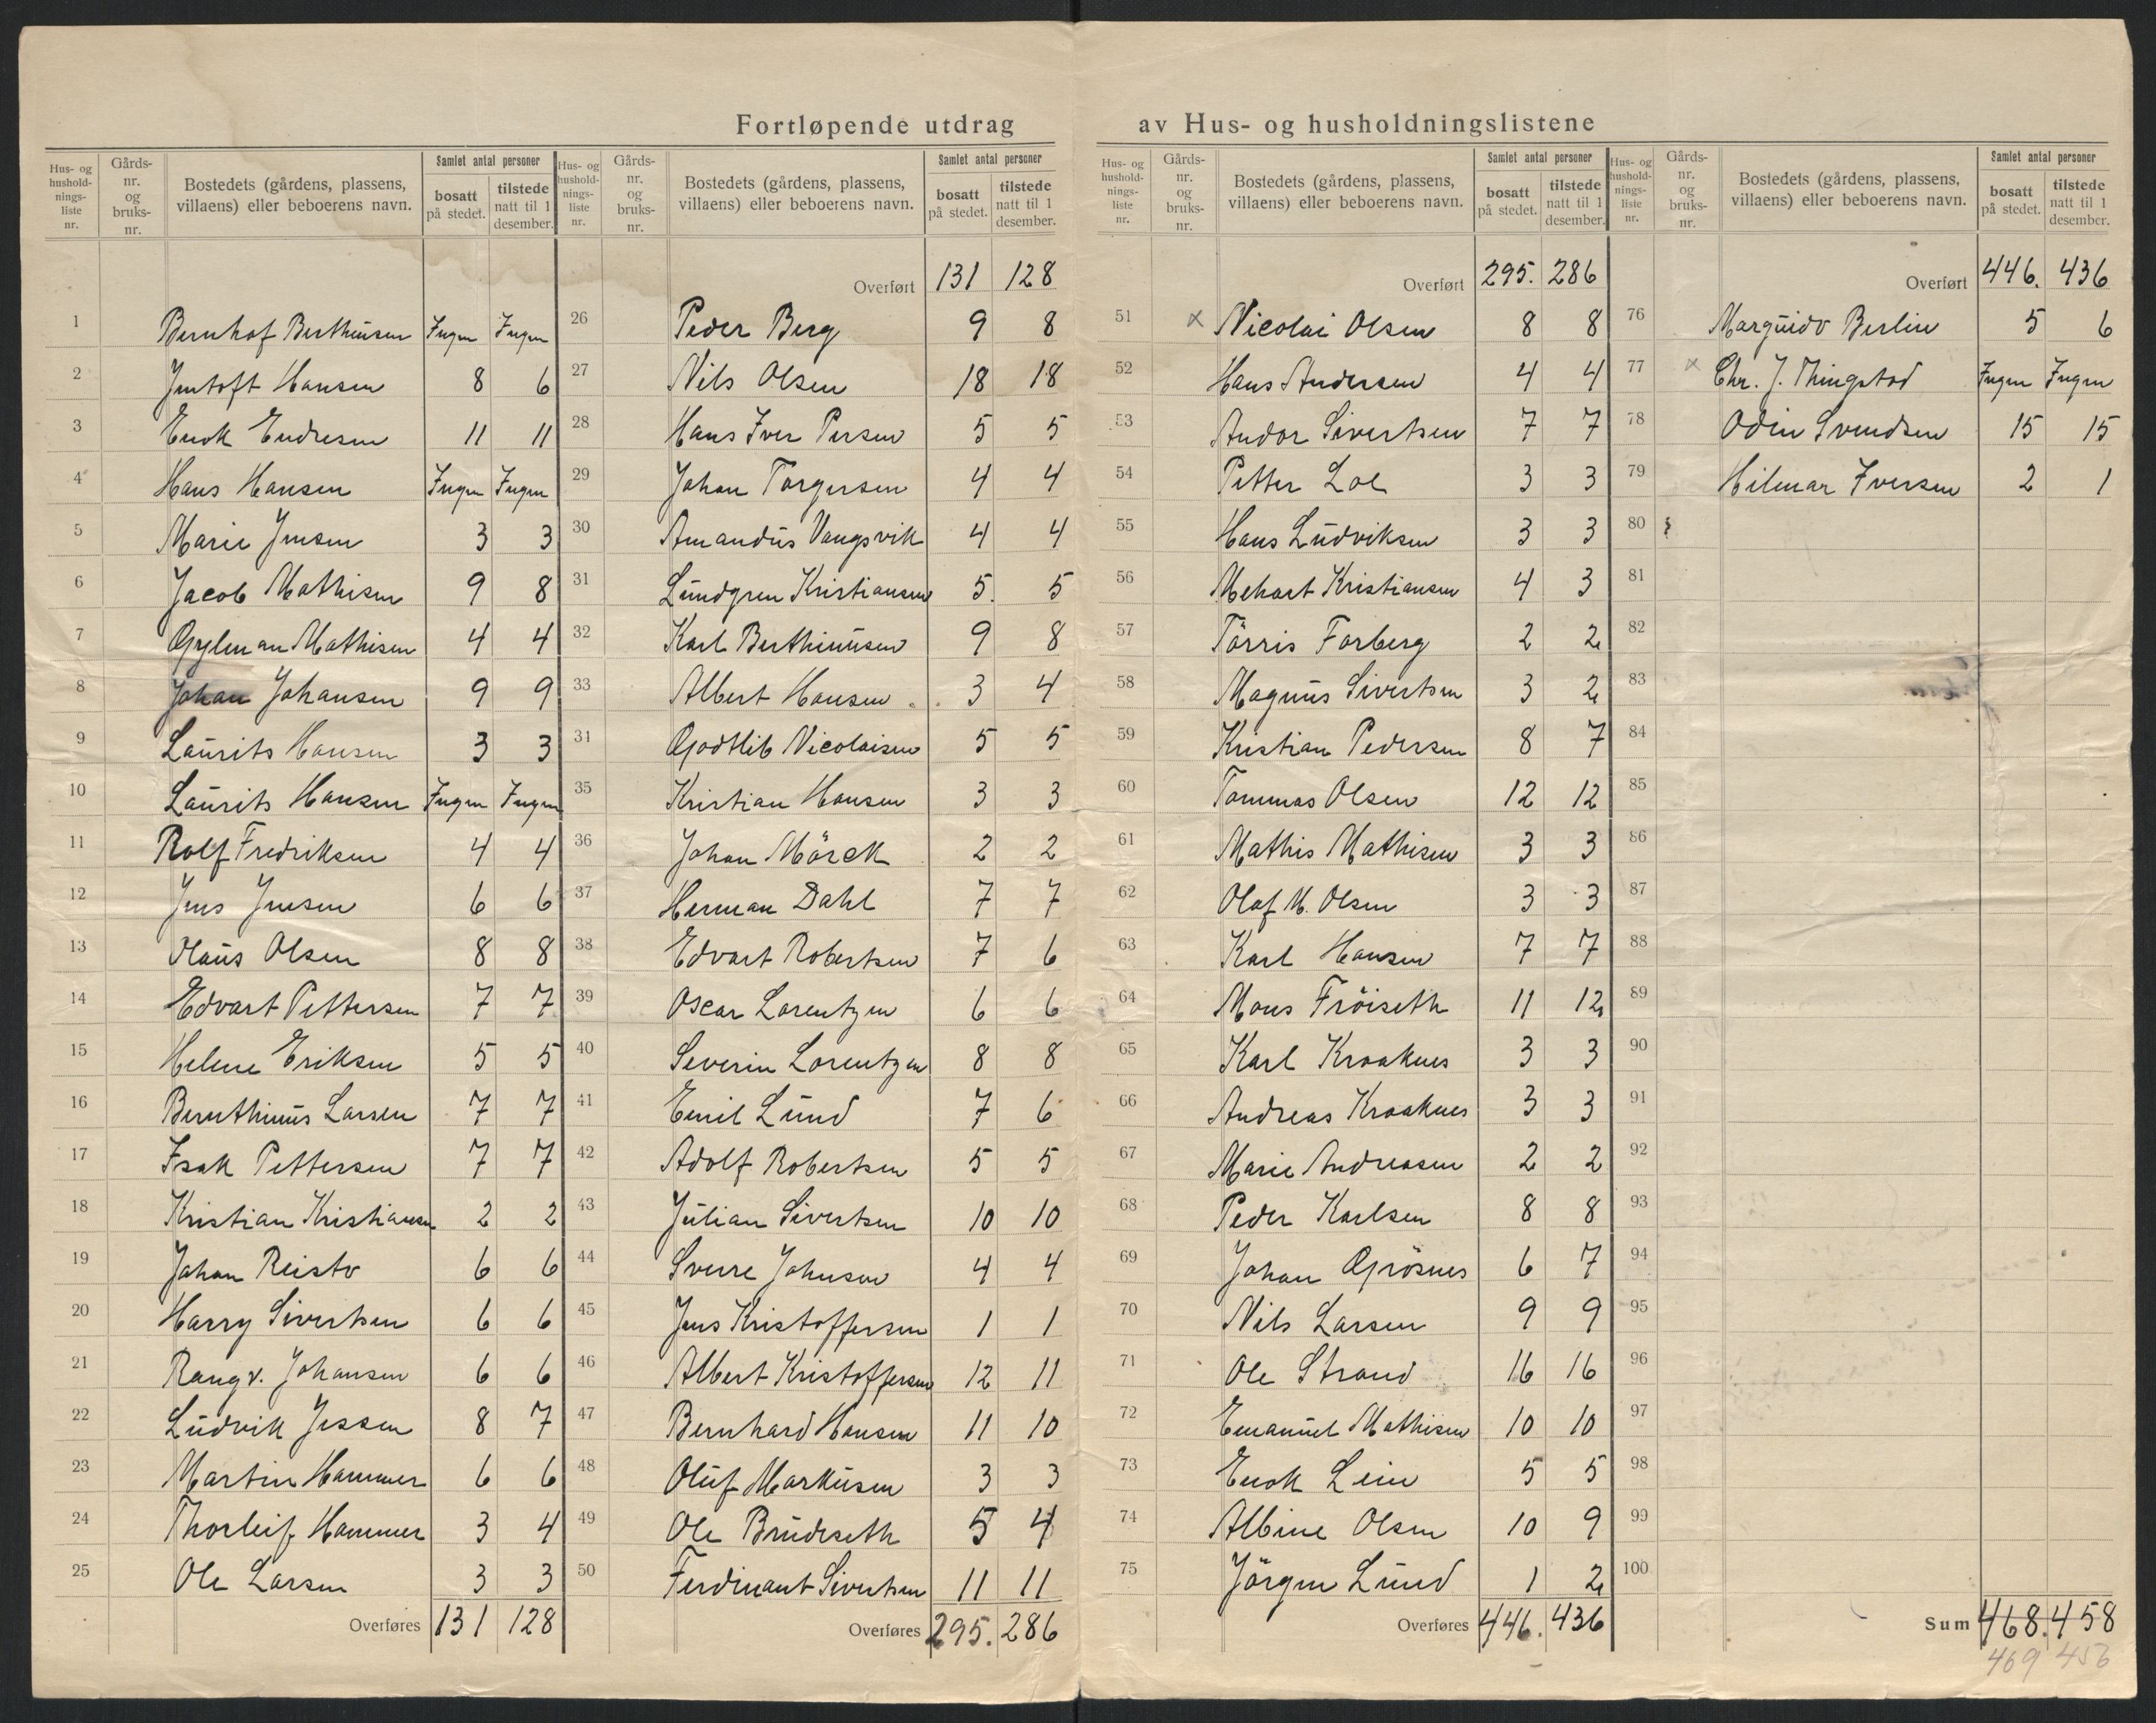 Fortløpende utdrag av Hus- og husholdningslistene
Hus- og hushold-nings-liste nr. | Gårds-nr. og bruks-nr. | Bostedets (gårdens, plassens, villaens) eller beboerens navn. | Samlet antal personer | bosatt på stedet. | tilstede natt til 1 desember.
1 Bernhof Berthinsen Ingen Ingen
2 Jentoft Hansen 8 6
3 Enok Endresen 11 11
4 Hans Hansen Ingen Ingen
5 Marie Jensen 3 3
6 Jacob Mathisen 9 8
7 Gylman Mathisen 4 4
8 Johan Johansen 9 9
9 Laurits Hansen 3 3
10 Laurits Hansen Ingen Ingen
11 Rolf Fredriksen 4 4
12 Jens Jensen 6 6
13 Olaus Olsen 8 8
14 Edvart Pettersen 7 7
15 Helene Eriksen 5 5
16 Bernthinus Larsen 7 7
17 Isak Pettersen 7 7
18 Kristian Kristiansen 2 2
19 Johan Reisto 6 6
20 Harry Sivertsen 6 6
21 Rangv. Johansen 6 6
22 Ludvik Jessen 8 7
23 Martin Hammer 6 6
24 Thorleif Hammer 3 4
25 Ole Larsen 3 3
Overføres 131 128
Hus- og hushold-nings-liste nr. | Gårds-nr. og bruks-nr. | Bostedets (gårdens, plassens, villaens) eller beboerens navn. | Samlet antal personer | bosatt på stedet. | tilstede natt til 1 desember.
Overført 131 128
26 Peder Berg 9 8
27 Nils Olsen 18 18
28 Hans Iver Persen 5 5
29 Johan Torgersen 4 4
30 Amandus Vangsvik 4 4
31 Lundgren Kristiansen 5. 5
32 Karl Berthinusen 9 8
33 Albert Hansen 3 4
31 Godtlib Nicolaisen 5 5
35 Kristian Hansen 3 3
36 Johan Mörck 2 2
37 Herman Dahl 7 7
38 Edvart Robertsen 7 6
39 Oscar Lorentzen 6 6
40 Severin Lorentzen 8 8
41 Emil Lund 7 6
42 Adolf Robertsen 5 5
43 Julian Sivertsen 10 10
44 Sverre Johnsen 4 4
45 Jens Kristoffersen 1 1
46 Albert Kristoffersen 12 11
47 Bernhard Hansen 11 10
48 Oluf Markusen 3 3
49 Ole Brudeseth 5 4
50 Ferdinant Sivertsen 11 11
Overføres 295. 286
Hus- og hushold-nings-liste nr. | Gårds-nr. og bruks-nr. | Bostedets (gårdens, plassens, villaens) eller beboerens navn. | Samlet antal personer | bosatt på stedet. | tilstede natt til 1 desember.
Overført 295. 286
51 x Nicolai Olsen 8 8
52 Hans Andersen 4 4
53 Andor Sivertsen 7 7
54 Petter Loe 3 3
55 Hans Ludviksen 3 3
56 Mehart Kristiansen 4 3
57 Törris Forberg 2 2
58 Magnus Sivertsen 3 2
59 Kristian Pedersen 8 7
60 Tommas Olsen 12 12
61 Mathis Mathisen 3 3
62 Olaf M. Olsen 3 3
63 Karl Hansen 7 7
64 Mons Fröiseth 11 12
65 Karl Kraaknes 3 3
66 Andreas Kraaknes 3 3
67 Marie Andreasen 2 2
68 Peder Karlsen 8 8
69 Johan Grösnes 6 7
70 Nils Larsen 9 9
71 Ole Strand 16 16
72 Emanuel Mathisen 10 10
73 Enok Lein 5 5
74 Albine Olsen 10 9
75 Jörgen Lund 1 2
Overføres 446. 436
Hus- og hushold-nings-liste nr. | Gårds-nr. og bruks-nr. | Bostedets (gårdens, plassens, villaens) eller beboerens navn. | Samlet antal personer | bosatt på stedet. | tilstede natt til 1 desember.
Overført 446. 436
76 Marguido Berlin 5 6
77 x Chr. J. Thingstad Ingen Ingen
78 Odin Svendsen 15 15
79 Hilmar Iversen 2 1
80
81
82
83
84
85
86
87
88
89
90
91
92
93
94
95
96
97
98
99
100
Sum 468. 458
469 456